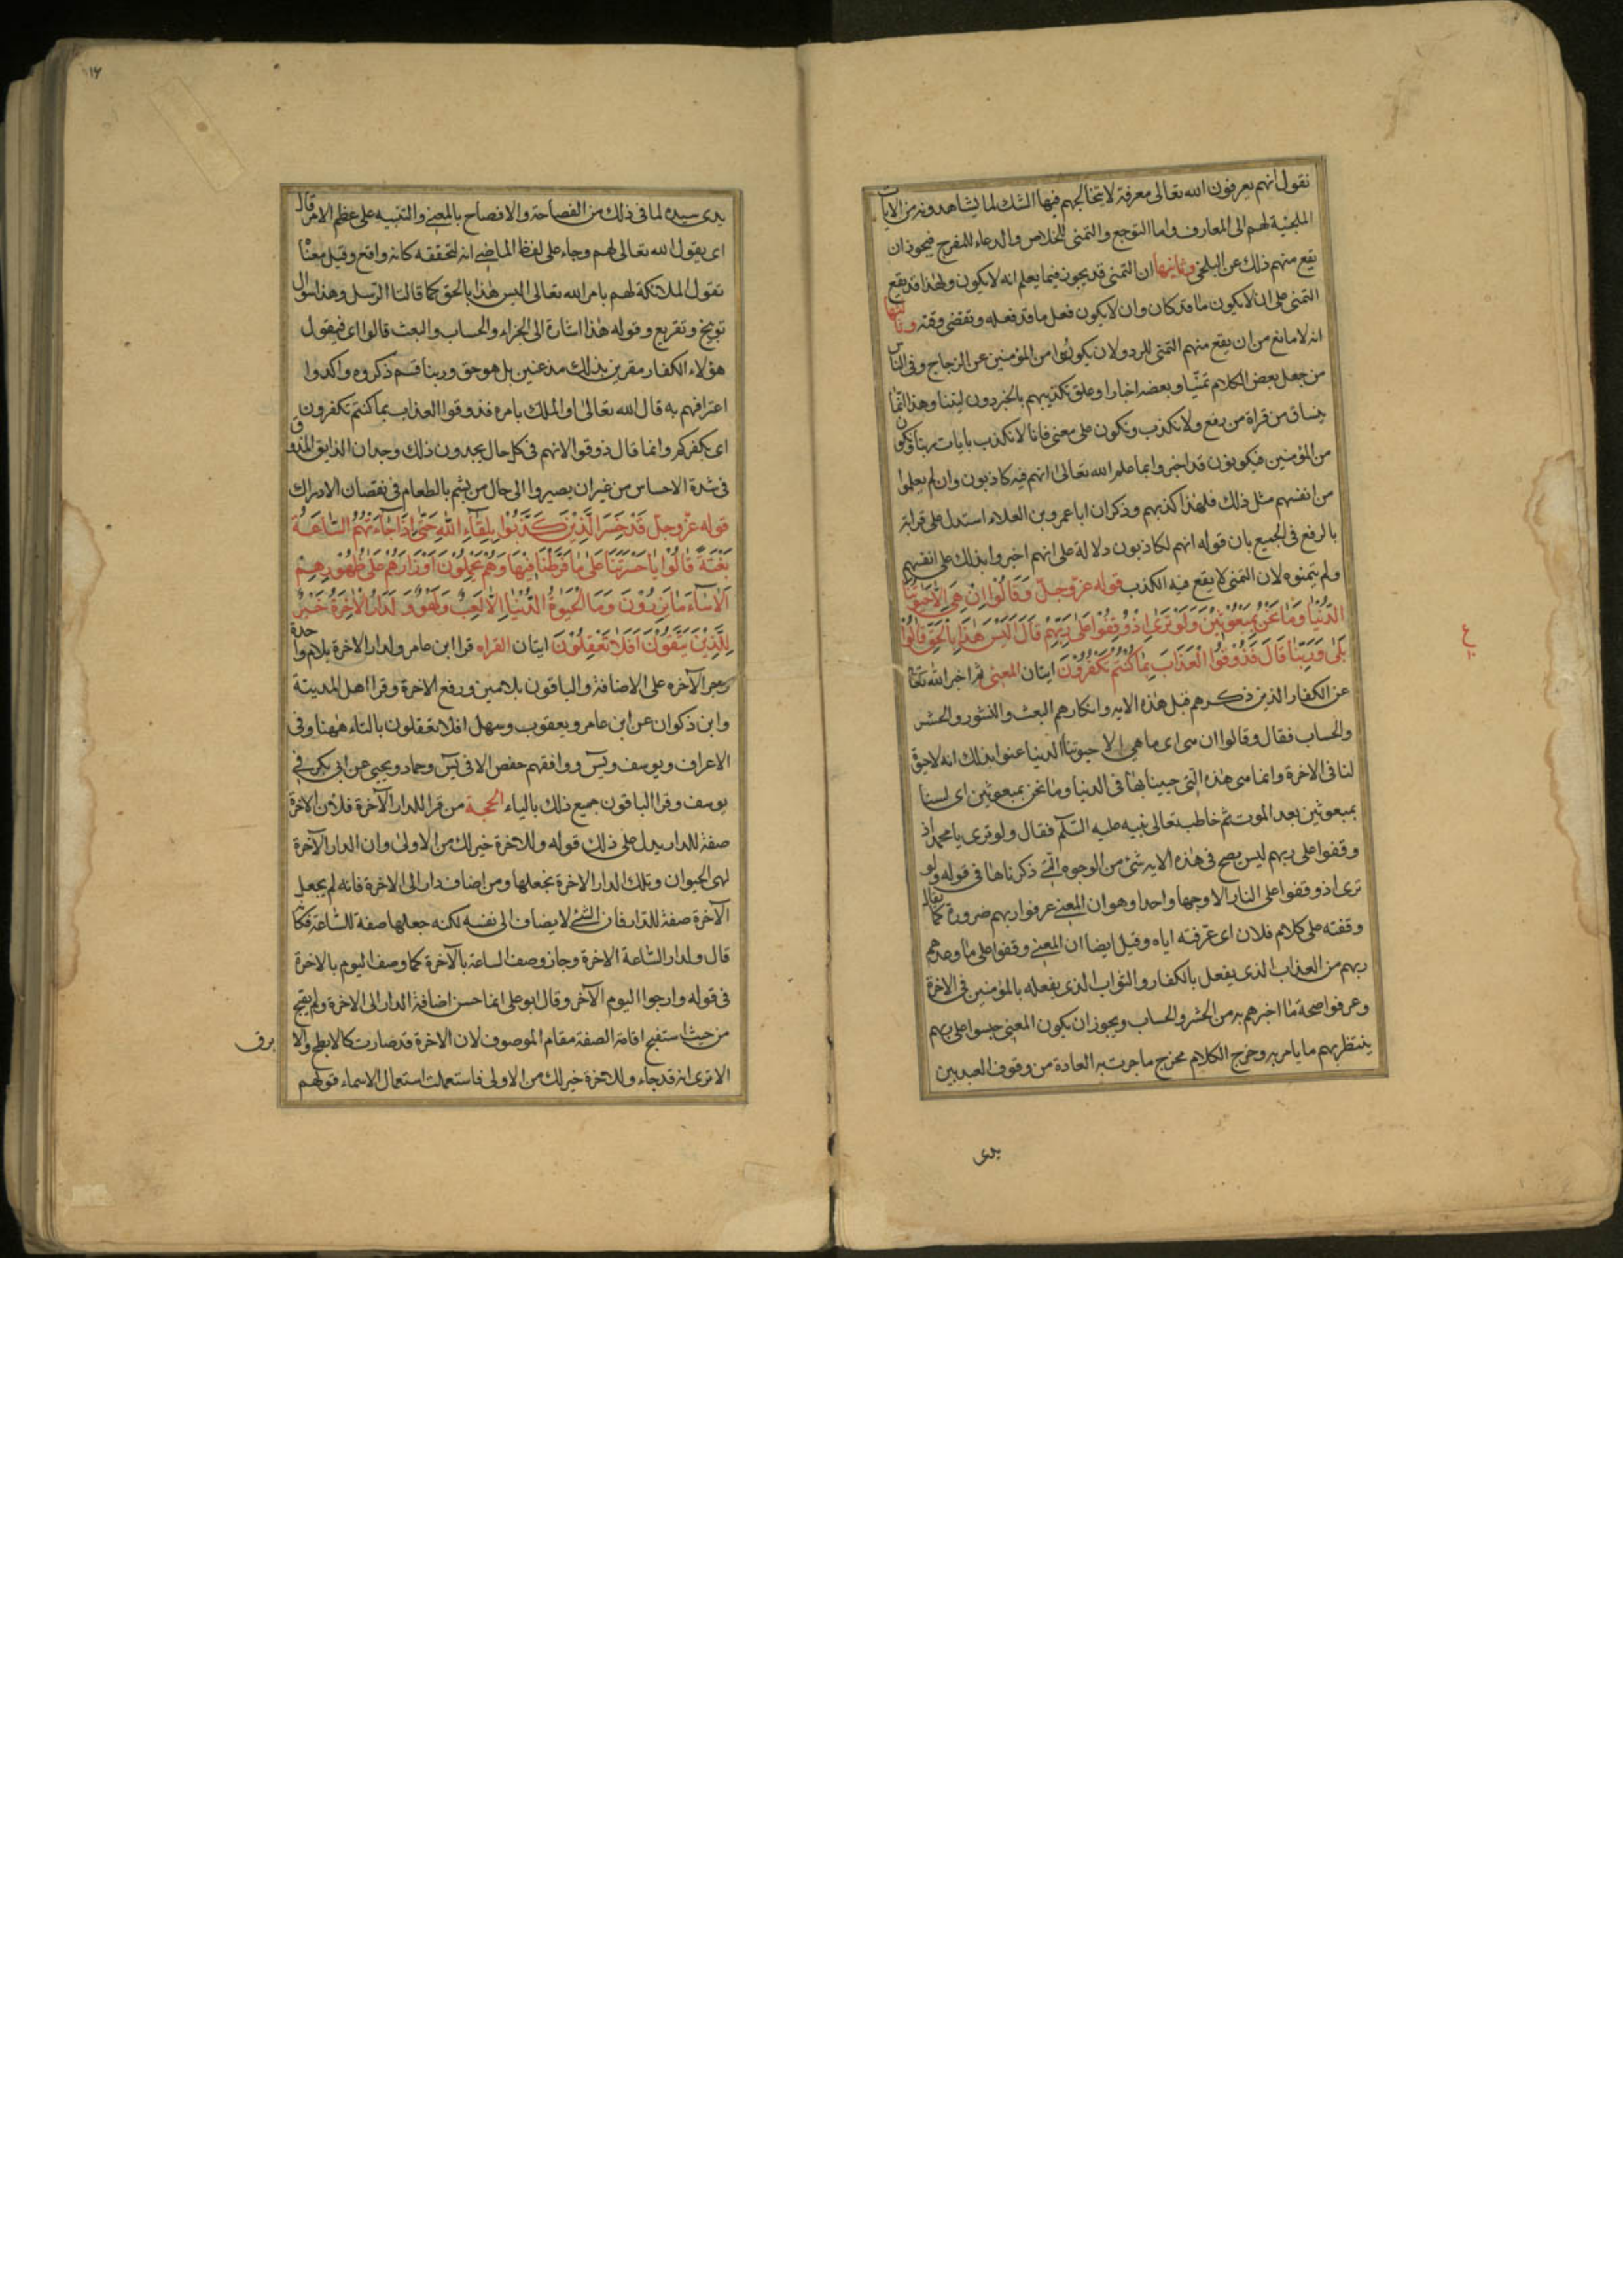 نقول انهم يعرفون الله تعالى معرفة لا يتخالجهم فيها الشك لما يشاهدونه من الايات
الملجئة لهم الى المعارف واما التوجع والتمنى للخلاص والدعاء للفرج فيجوز ان
يقع منهم ذلك عن البلخى وثانيها ان التمنى قد يجوز فيما يعلم انه لا يكون ولهذا قد يقع
التمنى على ان لا يكون ما قد كان وان لا يكون فعل ما قد فعله وتقضى وقته وثالثها
انه لا مانع من ان يقع منهم التمنى للرد ولان يكونوا من المؤمنين عن الزجاج وفى الناس
من جعل بعض الكلام تمنيا وبعضه اخبارا وعلق تكذيبهم بالخبر دون ليتنا وهذا انما
ينساق من قراة من رفع ولا نكذب ونكون على معنى فانا لا نكذب بايات ربنا ونكون
من المؤمنين فيكونون قد اخبروا بما علم الله تعالى انهم فيه كاذبون وان لم يعلموا
من انفسهم مثل ذلك فلهذا كذبهم وذكر ان ابا عمرو بن العلاء استدل على قراته
بالرفع فى الجميع بان قوله انهم لكاذبون دلالة على انهم اخبروا بذلك على انفسهم
ولم يتمنوه لان التمنى لا يقع فيه الكذب قوله عزّ وجلّ وَقَالُوا اِنْ هِيَ اِلَّا حَيٰوتُنَا
الدُّنْيَا وَمَا نَحْنُ بِمَبْعُوثِيْنَ وَلَوْ تَرٰى اِذْ وُقِفُوا عَلٰى رَبِّهِمْ قَالَ اَلَيْسَ هٰذَا بِالْحَقِّ قَالُوْا
بَلٰى وَرَبِّنَا قَالَ فَذُوْقُوا الْعَذَابَ بِمَا كُنْتُمْ تَكْفُرُوْنَ ايتان المعنى ثم اخبر الله تعالى
عن الكفار الذين ذكرهم قبل هذه الايه وانكارهم البعث والنشور والحشر
والحساب فقال وقالوا ان هى اى ما هى الا حيوتنا الدنيا عنوا بذلك انه لا حيوة
لنا فى الاخرة وانما هى هذه التى حيينا بها فى الدنيا وما نحن بمبعوثين اى لسنا
بمبعوثين بعد الموت ثم خاطب تعالى نبيه عليه السّلام فقال ولو ترى يا محمد اذ
وقفوا على ربهم ليس يصح فى هذه الايه شئ من الوجوه التى ذكرناها فى قوله ولو
ترى اذ وقفوا على النار الا وجها واحدا وهو ان المعنى عرفوا ربهم ضرورة كما يقال
وقفته على كلام فلان اى عرّفته اياه وقيل ايضا ان المعنى وقفوا على ما وعدهم
ربهم من العذاب الذى يفعل بالكفار والثواب الذى يفعله بالمؤمنين فى الاخرة
وعرفوا صحة ما اخبرهم به من الحشر والحساب ويجوز ان يكون المعنى حبسوا على ربهم
ينتظر بهم ما يامر به وخرج الكلام مخرج ما جرت به العادة من وقوف العبد بين
يدى
ع
١٦
يدى سيده لما فى ذلك من الفصاحة والافصاح بالمعنى والتنبيه على عظم الامر قال
اى يقول الله تعالى لهم وجاء على لفظ الماضى انه لتحققه كانه واقع وقيل معناه
تقول الملائكة لهم بامر الله تعالى اليس هذا بالحق كما قالت الرسل وهذا سوال
توبيخ وتقريع وقوله هذا اشارة الى الجزاء والحساب والبعث قالوا اى فيقول
هؤلاء الكفار مقرين بذلك مذعنين بل هو حق وربنا قسم ذكروه واكدوا
اعترافهم به قال الله تعالى او الملك بامره فذوقوا العذاب بما كنتم تكفرون
اى بكفركم وانما قال ذوقوا لانهم فى كل حال يجدون ذلك وجدان الذايق المذوق
فى شدة الاحساس من غير ان يصيروا الى حال من يشم بالطعام فى نقصان الادراك
قوله عزّ وجلّ قَدْ خَسِرَ الَّذِيْنَ كَذَّبُوْا بِلِقَآءِ اللهِ حَتّٰى اِذَا جَآءَتْهُمُ السَّاعَةُ
بَغْتَةً قَالُوْا يَا حَسْرَتَنَا عَلٰى مَا فَرَّطْنَا فِيْهَا وَهُمْ يَحْمِلُوْنَ اَوْزَارَهُمْ عَلٰى ظُهُوْرِهِمْ
اَلَا سَآءَ مَا يَزِرُوْنَ وَمَا الْحَيٰوةُ الدُّنْيَا اِلَّا لَعِبٌ وَلَهْوٌ وَلَدَارُ الْاٰخِرَةُ خَيْرٌ
لِلَّذِيْنَ يَتَّقُوْنَ اَفَلَا تَعْقِلُوْنَ ايتان القراه قرا ابن عامر ولدار الاخرة بلام واحدة
وجر الآخره على الاضافة والباقون بلامين ورفع الاخرة وقرا اهل المدينة
وابن ذكوان عن ابن عامر ويعقوب وسهل افلا تعقلون بالتاء ههنا وفى
الاعراف ويوسف ويس ووافقهم حفص الا فى يس وحماد ويحيى عن ابى بكر فى
يوسف وقرا الباقون جميع ذلك بالياء الحجة من قرا للدار الآخرة فلان الاخرة
صفة للدار يدل على ذلك قوله وللاخرة خير لك من الاولى وان الدار الآخرة
لهى الحيوان وتلك الدار الاخرة نجعلها ومن اضاف دار الى الاخرة فانه لم يجعل
الآخرة صفة للدار فان الشئ لا يضاف الى نفسه لكنه جعلها صفة للساعة فكانه
قال ولدار السّاعة الاخرة وجاز وصف الساعة بالآخرة كما وصف اليوم بالاخرة
فى قوله وارجوا اليوم الآخر وقال ابو على انما حسن اضافة الدار الى الاخرة ولم يقبح
من حيث استقبح اقامة الصفة مقام الموصوف لان الاخرة قد صارت كالابطح والابرق
الا ترى انه قد جاء وللاخرة خير لك من الاولى فاستعملت استعمال الاسماء قولهم